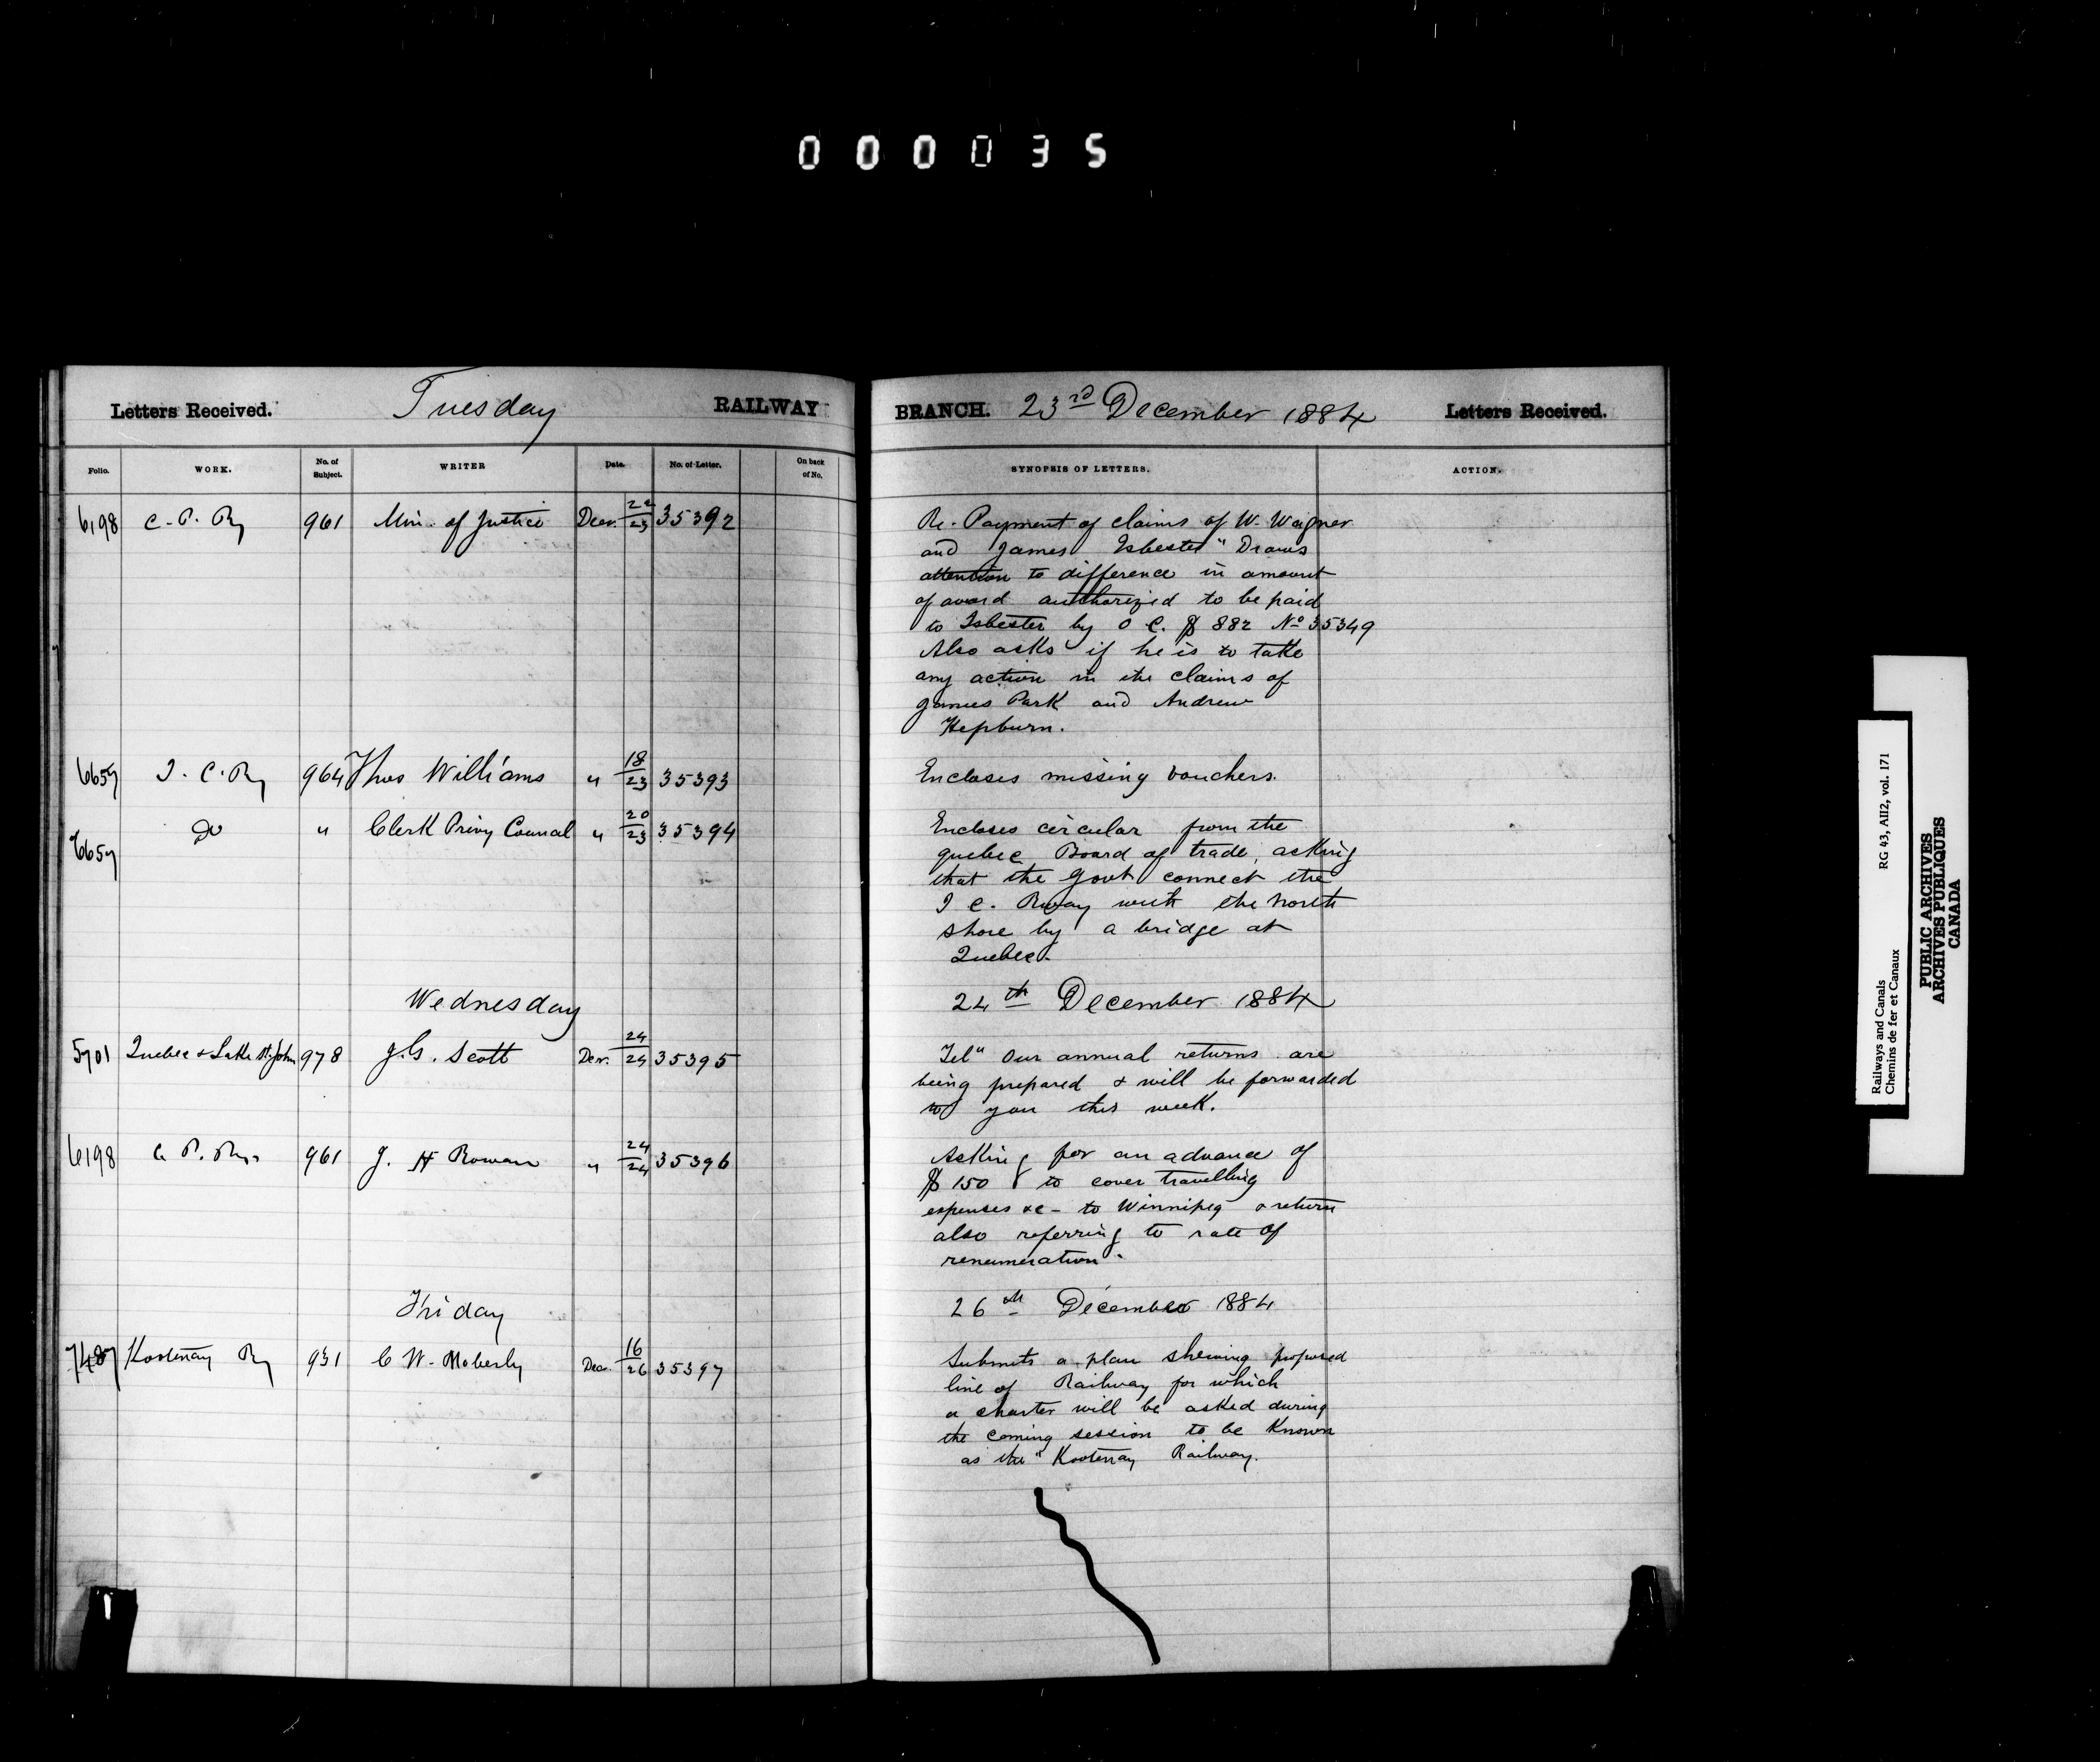 000035
Letters Received. Tuesday RAILWAY
Folio. WORK. No. of Subject. WRITER Date. No. of Letter. On back of No.
6198 C. P. Ry 961 Min. of Justice Decr. 22/23 35392
6657 I. C. Ry 964 Thos Williams " 18/23 35393
6657 Do " Clerk Privy Council " 20/23 35394
Wednesday
5701 Quebec & Lake St. John 978 J.G. Scott Decr. 24/24 35395
6198 C. P. Ry. 961 J. H Rowan " 24/24 35396
Friday
7487 Kootenay Ry 931 C W. Moberly Dec. 16/26 35397
BRANCH. 23rd December 1884 Letters Received.
SYNOPSIS OF LETTERS. ACTION.
Re. Payment of claims of W. Wagner
and James Isbester" Draws
attention to difference in amount
of award authorized to be paid
to Isbester by O C. $ 882 No 35349
Also asks if he is to take
any action in the claims of
James Park and Andrew
Hepburn.
Encloses missing vouchers.
Encloses circular from the
Quebec Board of trade, asking
that the Govt connect the
I C. Rway with the North
shore by a bridge at
Quebec.
24th December 1884
Tel" Our annual returns are
being prepared & will be forwarded
to you this week.
Asking for an advance of
$ 150 to cover travelling
expenses &c - to Winnipeg & return
also referring to rate of
renumeration.
26th December 1884
Submits a plan shewing proposed
line of Railway for which
a charter will be asked during
the coming session to be Known
as the "Kootenay Railway.
Railways and Canals RG 43, AII2, vol. 171
Chemins de fer et Canaux
PUBLIC ARCHIVES
ARCHIVES PUBLIQUES
CANADA